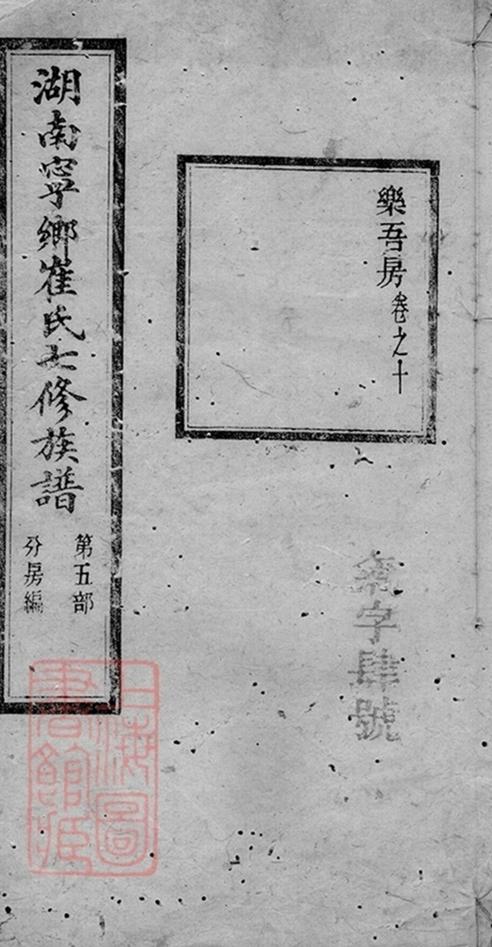 樂吾房卷之十
字肆號
湖南寧鄉崔氏七修族譜
第五部
分房編
上海圖
書館藏